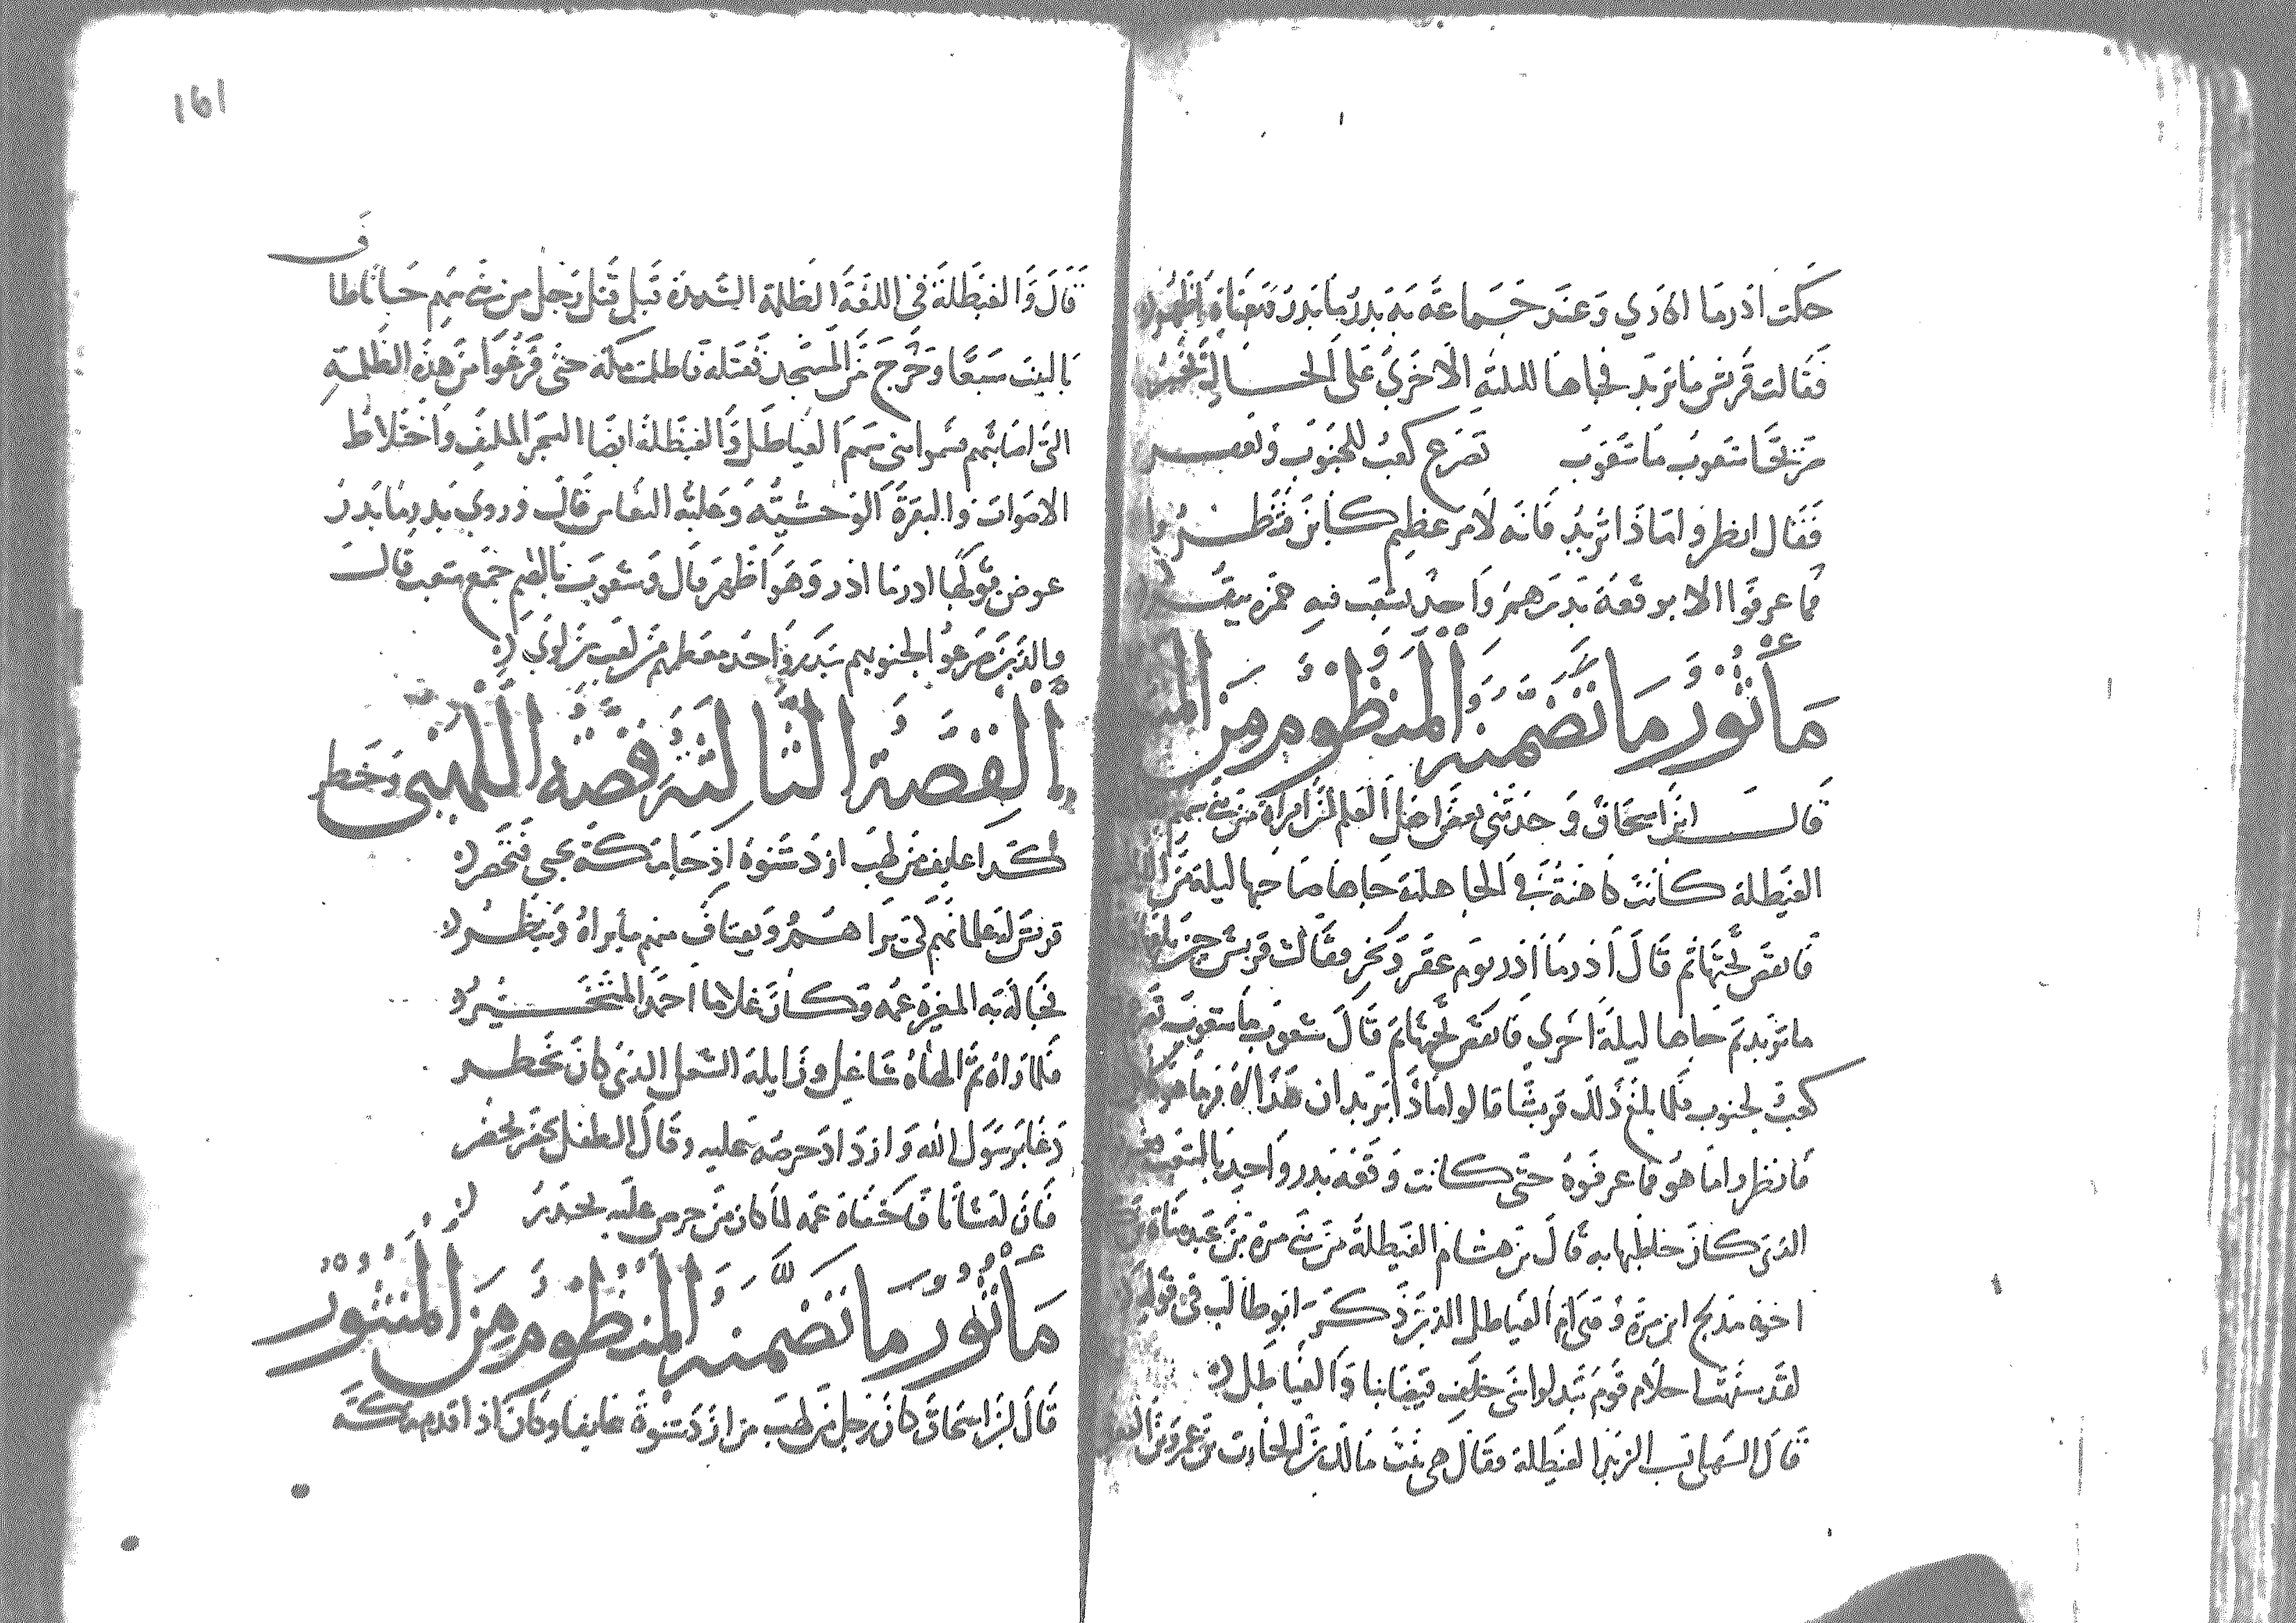 حكت ادر ما ادري وعند جماعة بدر ما بدر معناه اظهر
فقالت قريش ما تريد فجاها لليلة الاخرى على الحالة تخبر
من بحا شعوب ما شعوب تصرع كعب للجنوب
فقال انظروا ماذا تريد فانه لامر عظيم كاين فنظروا
فما عرفوا الا بوقعة بدرهم واحد بشعب فيه حمزه يبقر
مأثور ما تضمنه المنظوم من
قال ابن اسحاق وحدثني بعض اهل العلم ان امراة من بني سهم
الغيطلة كانت كاهنة في الجاهلية جاها صاحبها ليلة من
فانقض تحتها ثم قال ادر ما ادر يوم عقر ونحر فقالت قريش حين بلغها
ما تريد ثم جاها ليلة اخرى فانقض تحتها ثم قال شعوب ما شعوب
كعب لجنوب فلما بلغ ذلك قريشا قالوا ماذا يريد ان هذا لامر ما هو
فانظروا ما هو فما عرفوه حتى كانت وقعة بدر واحد بالشعب
الذي كان خلطبها به قال بن هشام الغيطلة من بني مرة بن عبد مناة بن
اخوة مدلج ابن مرة وهي ام الغياطل الذين ذكر ابو طالب في قوله
لقد سفهت احلام قوم تبدلوا بني خلف قيضا بنا والغياطل
قال السهيلي نسب الزبير الغيطلة فقال هي بنت مالك بن الحارث بن عمرو بن
161
ف
قال والغيطلة في اللغة الظلمة الشديدة قيل قتل رجل من بني سهم جانا طا
بالبيت سبعا وخرج من المسجد فقتله فاظلمت مكة حتى فزعوا من هذه الظلمة
التي اصابتهم فسموا بني سهم الغياطل والغيطلة ايضا الشجر الملتف واختلاط
الاصوات والبقرة الوحشية وغلبة النعاس قال وروي بدر ما بدر
عوض قولها ادر ما ادر وهو اظهر قال وشعوب بالضم جمع شعب قال
والذين صرعوا لجنوبهم ببدر واحد معظمهم من كعب بن لوي
القصة الثالثة قصة اللهبي وخطر
كدا عايف من لهب ازد شنوة اذ جا مكة يجي فتحضر
قريش له غلمانهم لكي يراهم ويعتاف منهم ما يراه وينظر
فجا له به المغيرة عمه وكان غلاما احمد المتخير
فلما راه ثم الهاه شاغل وزايله الشغل الذي كان يخطر
دعا برسول الله وازداد حرصه عليه وقال الطفل يحضر
فان لشانا فاخفاه عمه لما كان من حرص عليه يحذر
مأثور ما تضمنه المنظوم من المنثور
قال ابن اسحاق كان رجل من لهب من ازد شنوة عايفا وكان اذا قدم مكة